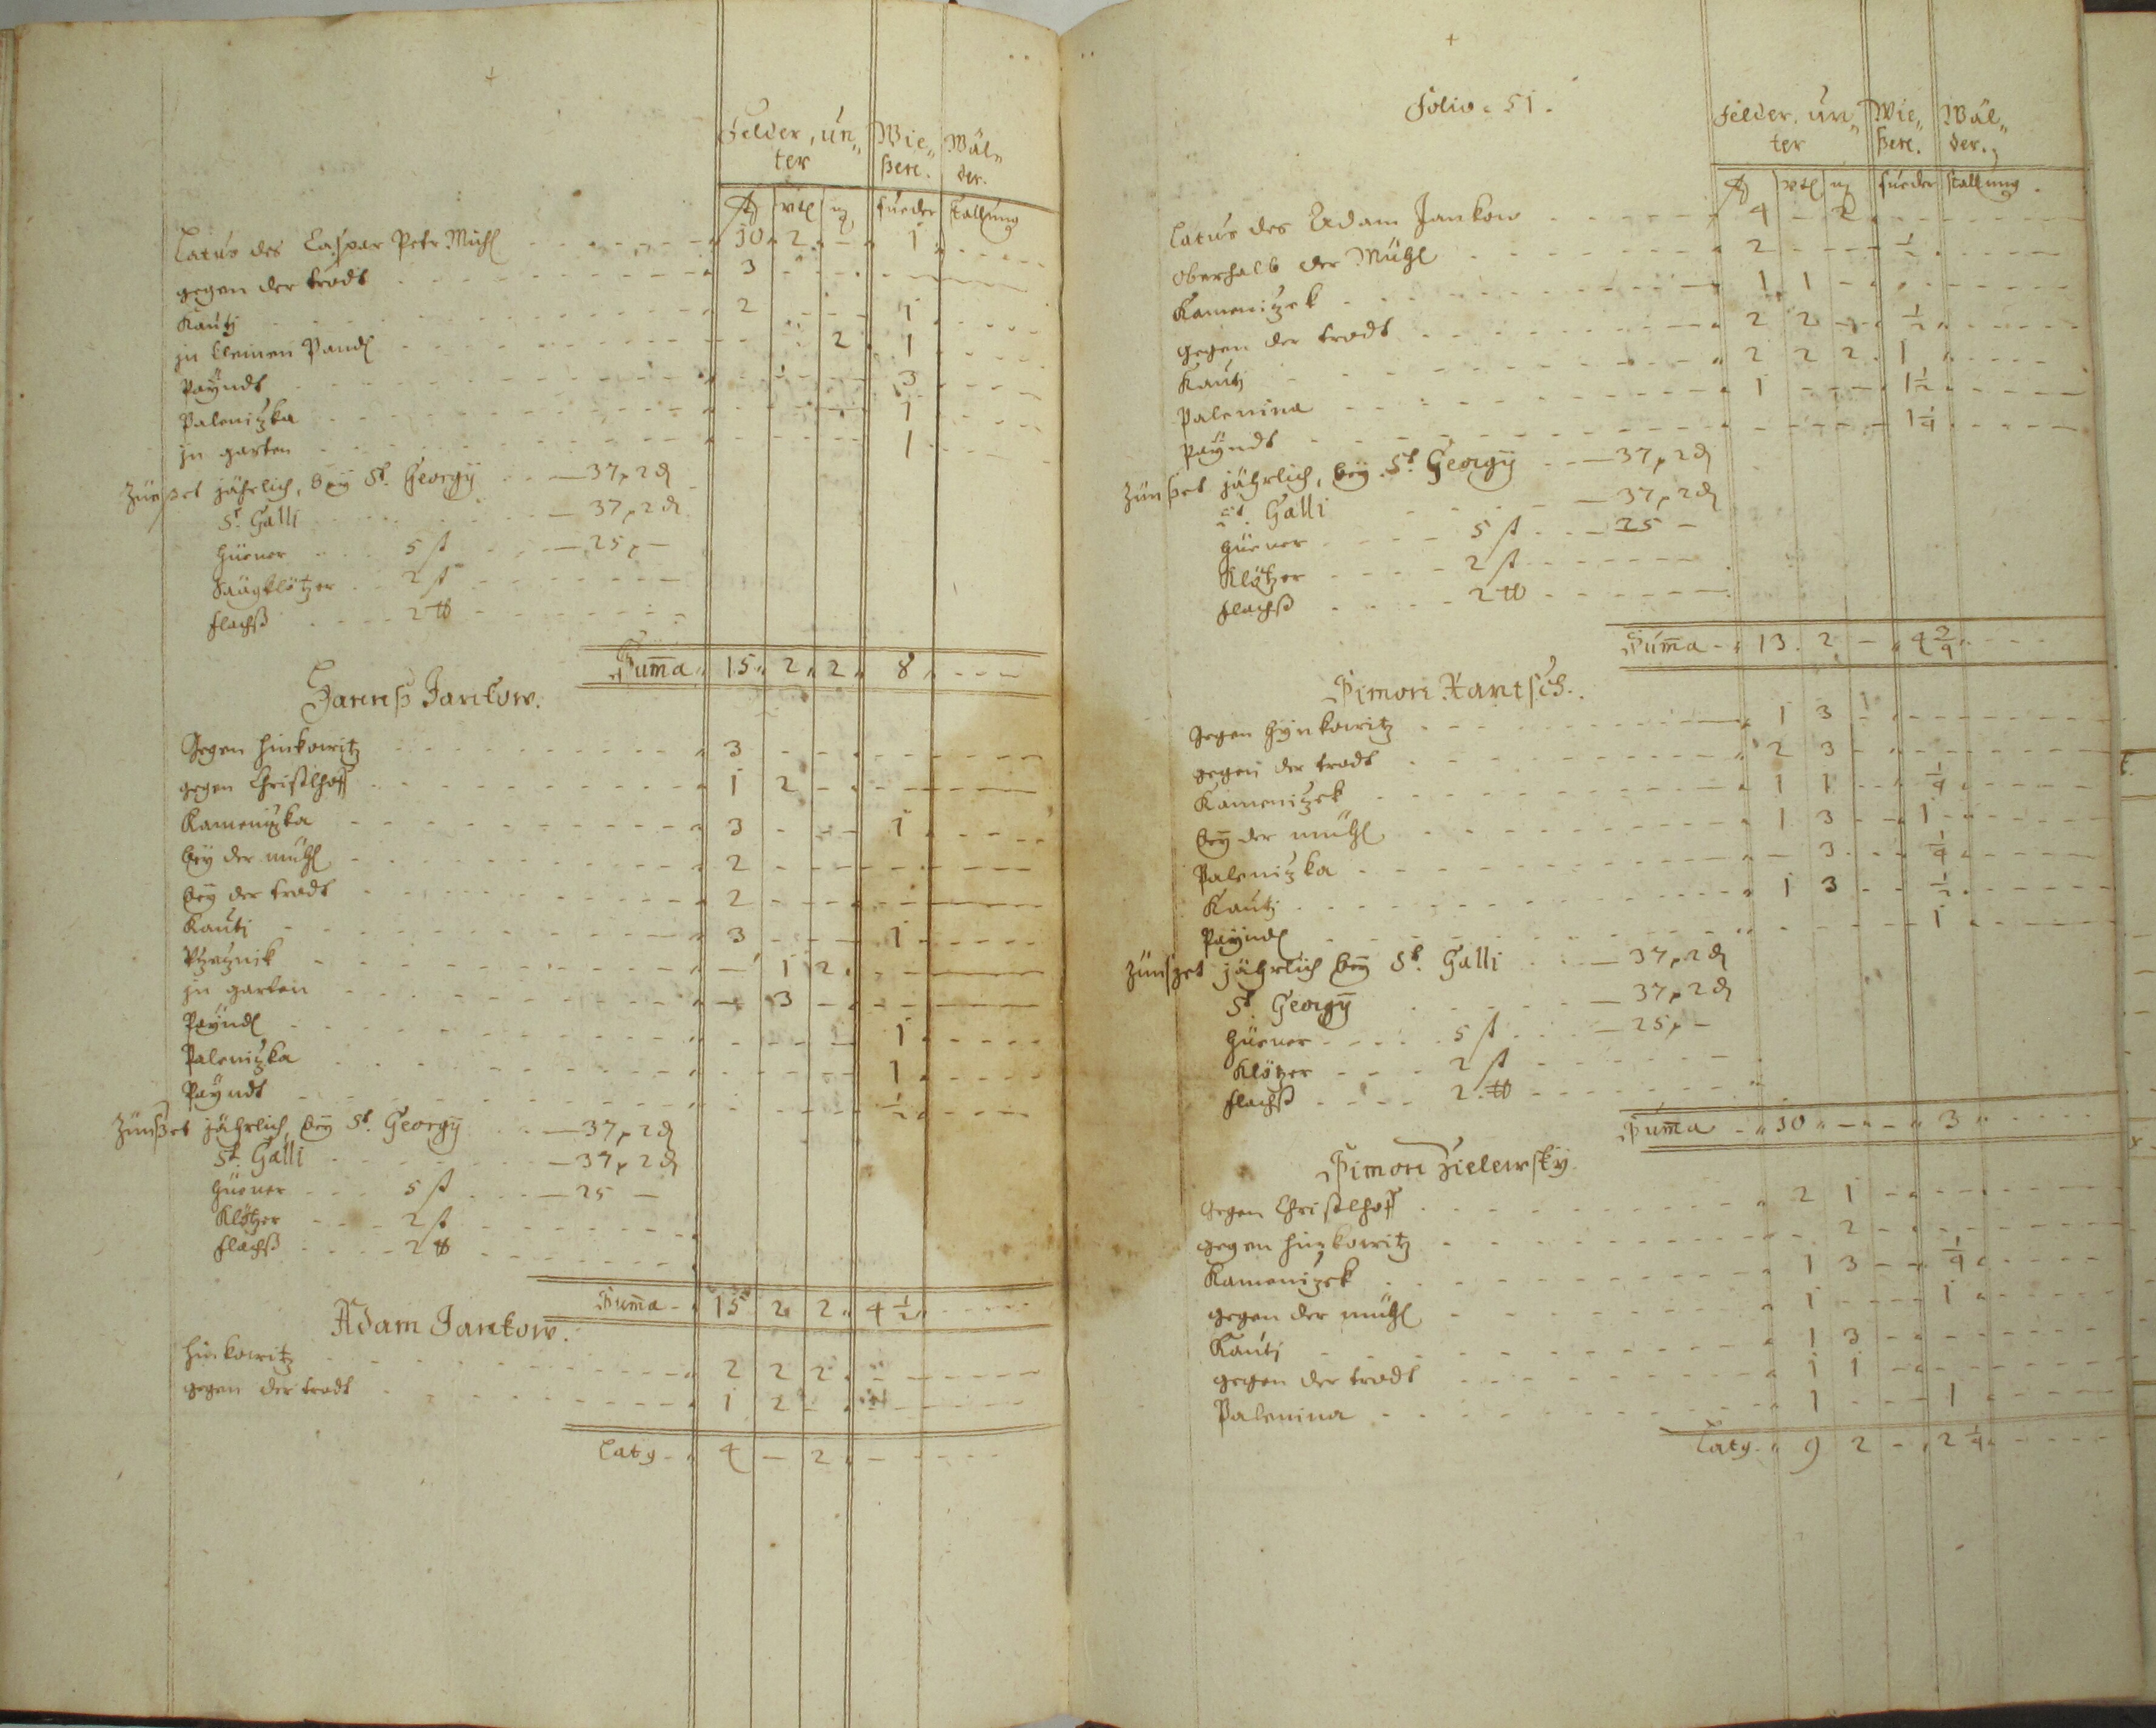 Felder, un„ Wie„ Wäl„
ter ßen. der.
vtl fueder stallung
Latus des Caspar Petr Mühl 10 2 — 1
gegen der tradt 3
Kauti 2 1
in kleinen Pandl 2 1
Payndt 3
Palenitzka 1
in garten 1
Zünßet jährlich, bey St. Georgy — 37 x 2 d
St. Galli — 37 x 2 d
Hüener 5 st — 25 x —
Saägklötzer 2 st
flachß 2 ℔
Summa 15 2 2 8
Hannß Jankow.
Gegen Hinkowitz 3
gegen Christlhoff 1 2 —
Kamenitzka 3 1
bey der mühl 2
bey der tradt 2
Kauti 3 1
— 1 2
in garten — 3 —
Payndl 1
Palenitzka 1
Payndt ½
Zünßet jährlich, bey St. Georgy — 37 x 2 d
St. Galli — 37 x 2 d
Hüener 5 st — 25 —
Klötzer 2 st
flachß 2 ℔
Summa 15 2 2 4 ½
Adam Jankow.
Hinkowitz 2 2 2
gegen der tradt 1 2 —
Latg 4 — 2 —
Folio. 51.
Felder, un„ Wie„ Wäl„
ter ßen. der.
vtl fueder stallung.
Latus des Adam Jankow 4 — 2
oberhalb der Mühl 2 ½
Kamenitzek 1 1 —
gegen der tradt 2 2 — ½
Kauti 2 2 2 1
Palenina 1 1½
Payndt 1¼
Zünßet jährlich, bey St. Georgy — 37 x 2 d
St. Galli — 37 x 2 d
Hüener 5 st — 25 —
Klötzer 2 st
flachß 2 ℔
Summa 13 2 — 4 ¾
Simon
Gegen Hynkowitz 1 3 1
gegen der tradt 2 3 —
Kamenitzek 1 1 — ¼
bey der mühl 1 3 — 1
Palenitzka — 3 ¼
Kauti 1 3 — ½
Payndl 1
Zünßet jährlich bey St. Galli — 37 x 2 d
St. Georgy — 37 x 2 d
Hüener 5 st — 25 x —
Klötzer 2 st
flachß 2 ℔
Summa 10 — — 3
Simon Zielewsky
Gegen Christlhoff 2 1 —
gegen Hinkowitz 2 —
Kamenitzek 1 3 — ¼
gegen der mühl 1 1
Kauti 1 3 —
gegen der tradt 1 1 —
Palenina 1 1
Latg. 9 2 — 2 ¼